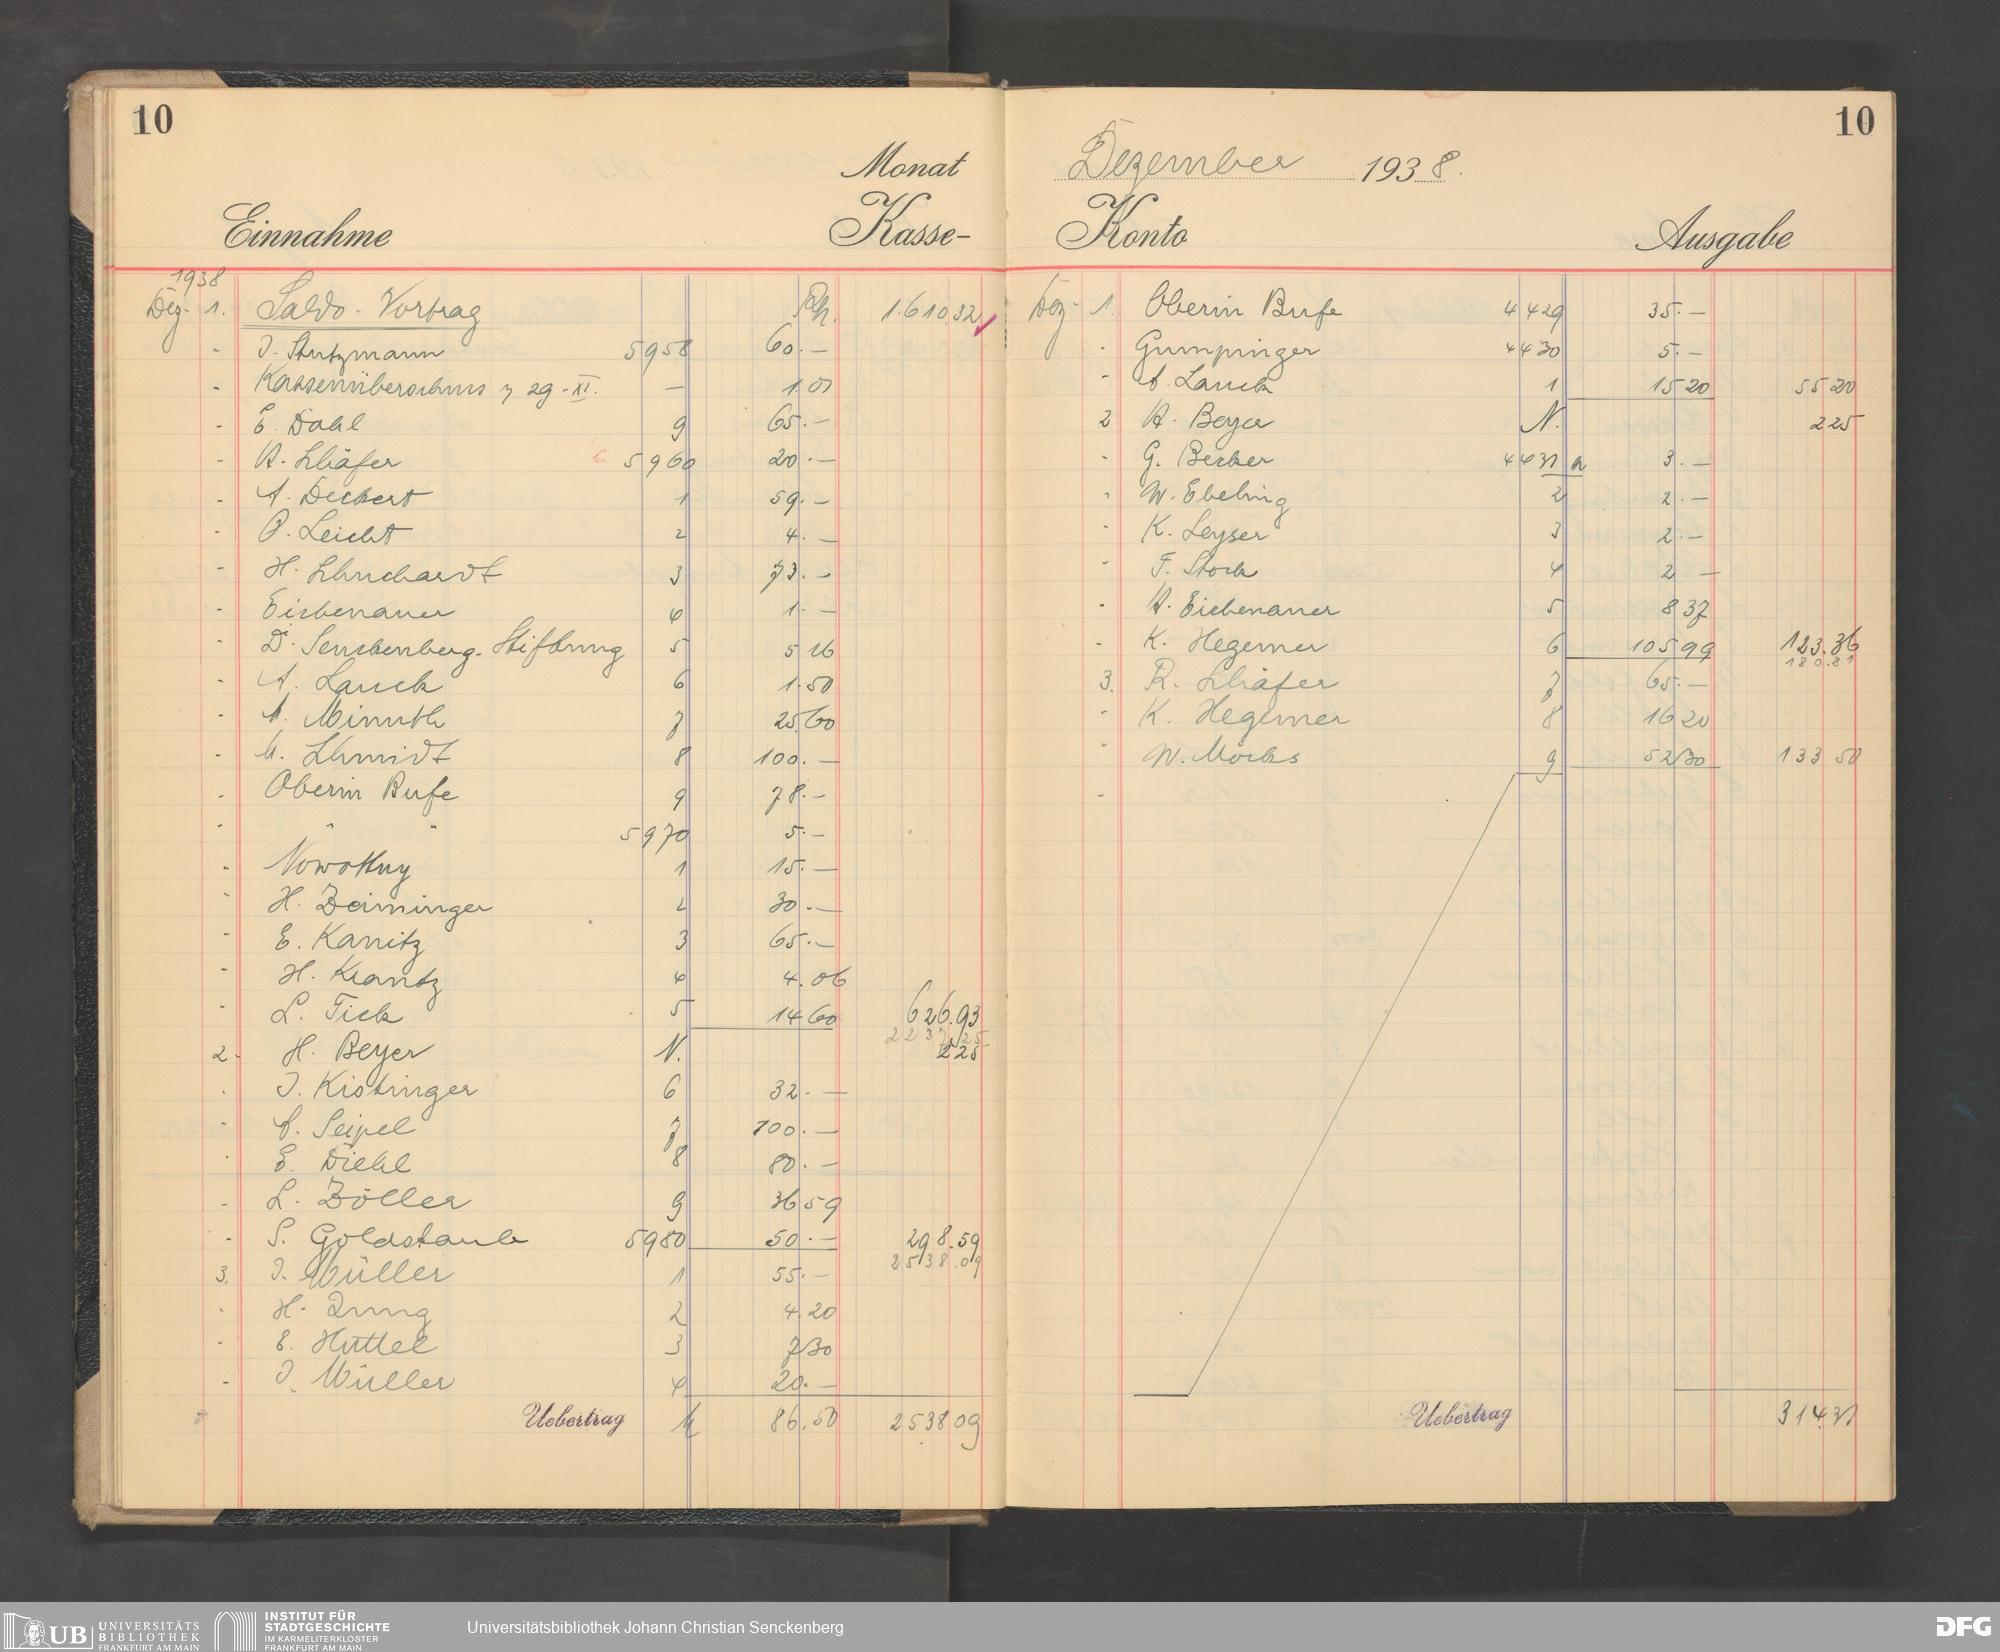 10
Monat
Kasse-
Einnahme
1938
Dez. 1. Saldo-Vortrag Rh. 1.610 32
- J. Stutzmann 5958 60.—
- Kassenüberschuss 29-XI. — 1.01
- E. Dahl 9 65.—
- A. Schäfer 5960 20.—
- A. Deckert 1 59.—
- P. Leicht 2 4.—
- H. Schuchardt 3 73.—
- Eisbenauer 4 1.—
- Dr. Senckenberg. Stiftung 5 5 16
- A. Lauck 6 1.50
- A. Minuth 7 25.60
- M. Schmidt 8 100.—
- Oberin Bufe 9 78.—
- " " 5970 5.—
- Nowottny 1 15.—
- H. Deiminger 2 30.—
- E. Kanitz 3 65.—
- H. Krantz 4 4.06
- L. Fick 5 14 60 626.93
2237.25
2. H. Beyer N. 225
- J. Kistinger 6 32.—
- C. Seipel 7 100.—
- E. Diehl 8 80.—
- L. Zöller 9 36 59
- S. Goldstaub 5980 50.— 298.59
2538.09
3. J. Müller 1 55.—
- H. Jung 2 4.20
- E. Huttel 3 7 30
- J. Müller 4 20.—
Uebertrag 86.50 2538 09
10
Dezember 1938.
Konto
Ausgabe
Dez. 1. Oberin Bufe 4429 35.—
- Gumpinger 4430 5.—
- A. Lauck 1 15 20 55 20
2 H. Beyer N. 2 25
- G. Becker 4431 a 3.—
- W. Ebeling 2 2.—
- K. Leyser 3 2.—
- F. Stock 4 2.—
- A. Eisbenauer 5 8 37
- K. Hegemer 6 105 99 123.36
180.81
3. R. Schäfer 7 65.—
- K. Hegemer 8 16 20
- W. Möcks 9 52 30 133 50
-
Uebertrag 314.31
UB UNIVERSITÄTS
BIBLIOTHEK
FRANKFURT AM MAIN
INSTITUT FÜR
STADTGESCHICHTE
IM KARMELITERKLOSTER
FRANKFURT AM MAIN
Universitätsbibliothek Johann Christian Senckenberg
DFG